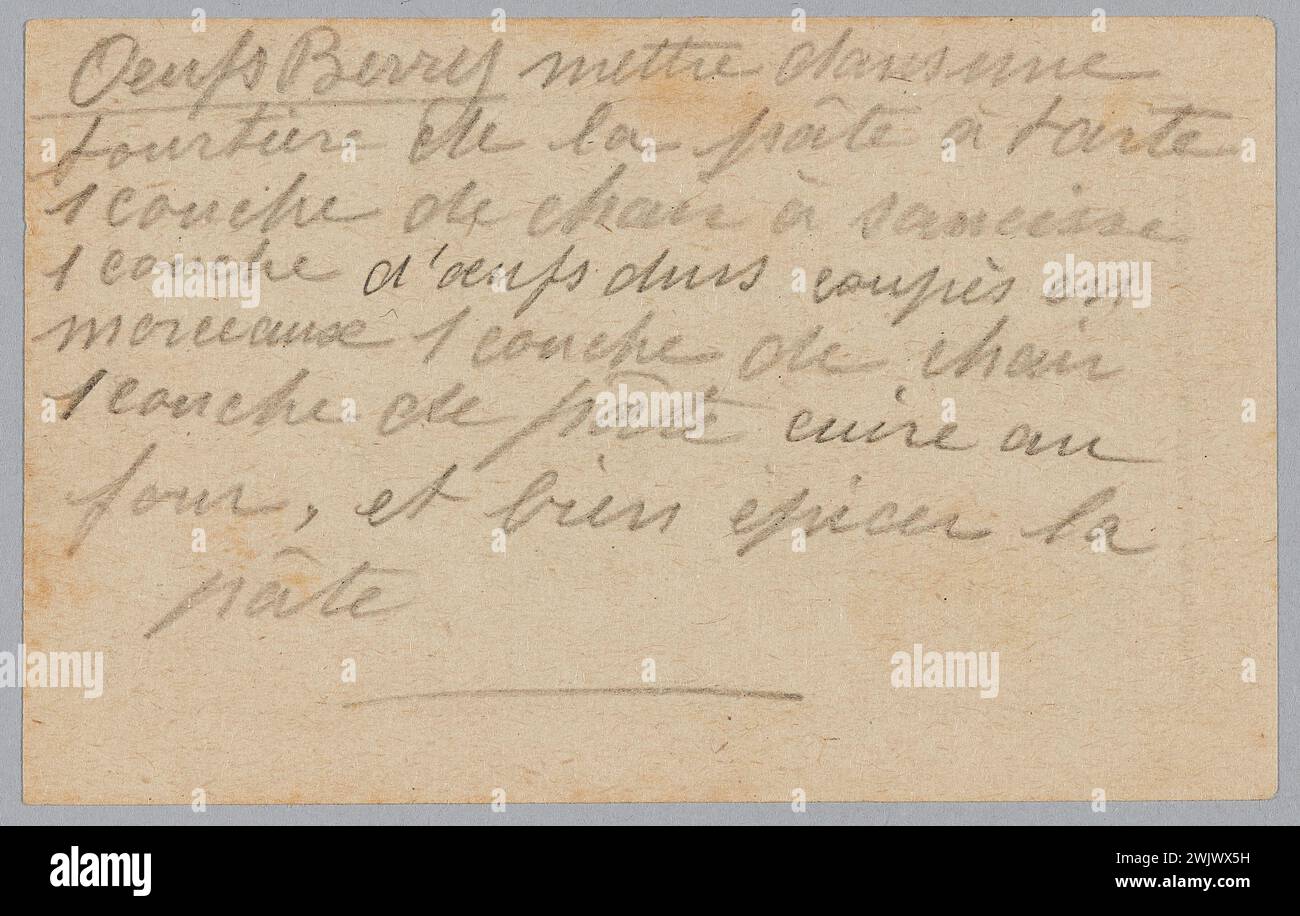 Oeufs Berry mettre dans une
tourtière de la pâte à tarte
1 couche de chair à saucisse
1 couche d'œufs durs coupés en
morceaux 1 couche de chair
1 couche de pâte cuire au
four, et bien épicer la
pâte
a
alamy
Image ID: 2WJWX5H
www.alamy.com